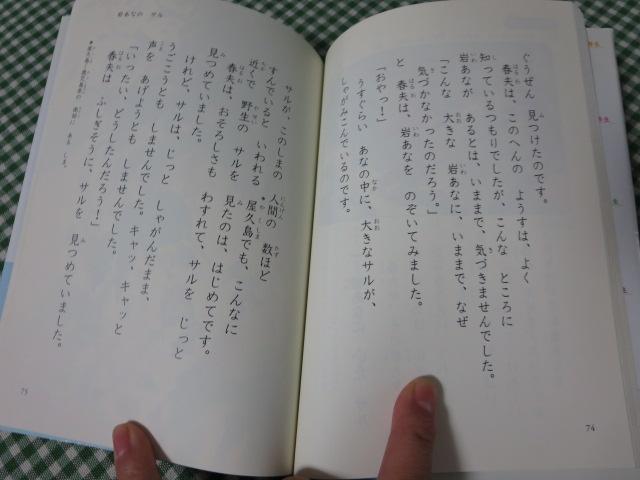 ぐうぜん 見つけたのです。
春夫は、このへんの ようすは、よく
知っているつもりでしたが、こんな ところに
岩あなが あるとは、いままで、気づきませんでした。
「こんな 大きな 岩あなに、いままで、なぜ
気づかなかったのだろう。」
と 春夫は、岩あなを のぞいてみました。
「おやっ！」
うすぐらい あなの中に、大きなサルが、
しゃがみこんでいるのです。
74
岩あなの サル
サルが、このしまの 人間の 数ほど
すんでいると いわれる 屋久島でも、こんなに
近くで 野生の サルを 見たのは、はじめてです。
春夫は、おそろしさも わすれて、サルを じっと
見つめていました。
けれど、サルは、じっと しゃがんだまま、
うごこうとも しませんでした。キャッ、キャッと
声を あげようとも しませんでした。
「いったい、どうしたんだろう！」
春夫は ふしぎそうに、サルを 見つめていました。
75